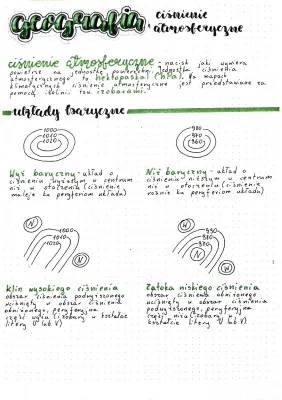 geografia
ciśnienie
atmosferyczne
ciśnienie atmosferyczne - nacisk jaki wywiera
powietrze na jednostkę powierzchni. Jednostką ciśnienia
atmosferycznego jest hektopaskal (hPa). Na mapach
klimatycznych ciśnienie atmosferyczne jest przedstawiane za
pomocą izolinii zw. izobarami.
układy baryczne
1000
1010
1020
980
970
960
Wyż baryczny - układ o
ciśnieniu wyższym w centrum
niż w otoczeniu (ciśnienie
maleje ku peryferiom układu)
Niż baryczny - układ o
ciśnieniu niższym w centrum
niż w otoczeniu (ciśnienie
rośnie ku peryferiom układu)
N
1000
1010
1020
N
W
990
980
970
W
Klin wysokiego ciśnienia
obszar ciśnienia podwyższonego
wciśnięty w obszar ciśnienia
obniżonego, peryferyjna
część wyżu (izobary w kształcie
litery U lub V)
Zatoka niskiego ciśnienia
obszar ciśnienia obniżonego
wciśnięty w obszar ciśnienia
podwyższonego, peryferyjna
część niżu (izobary w
kształcie litery U lub V)